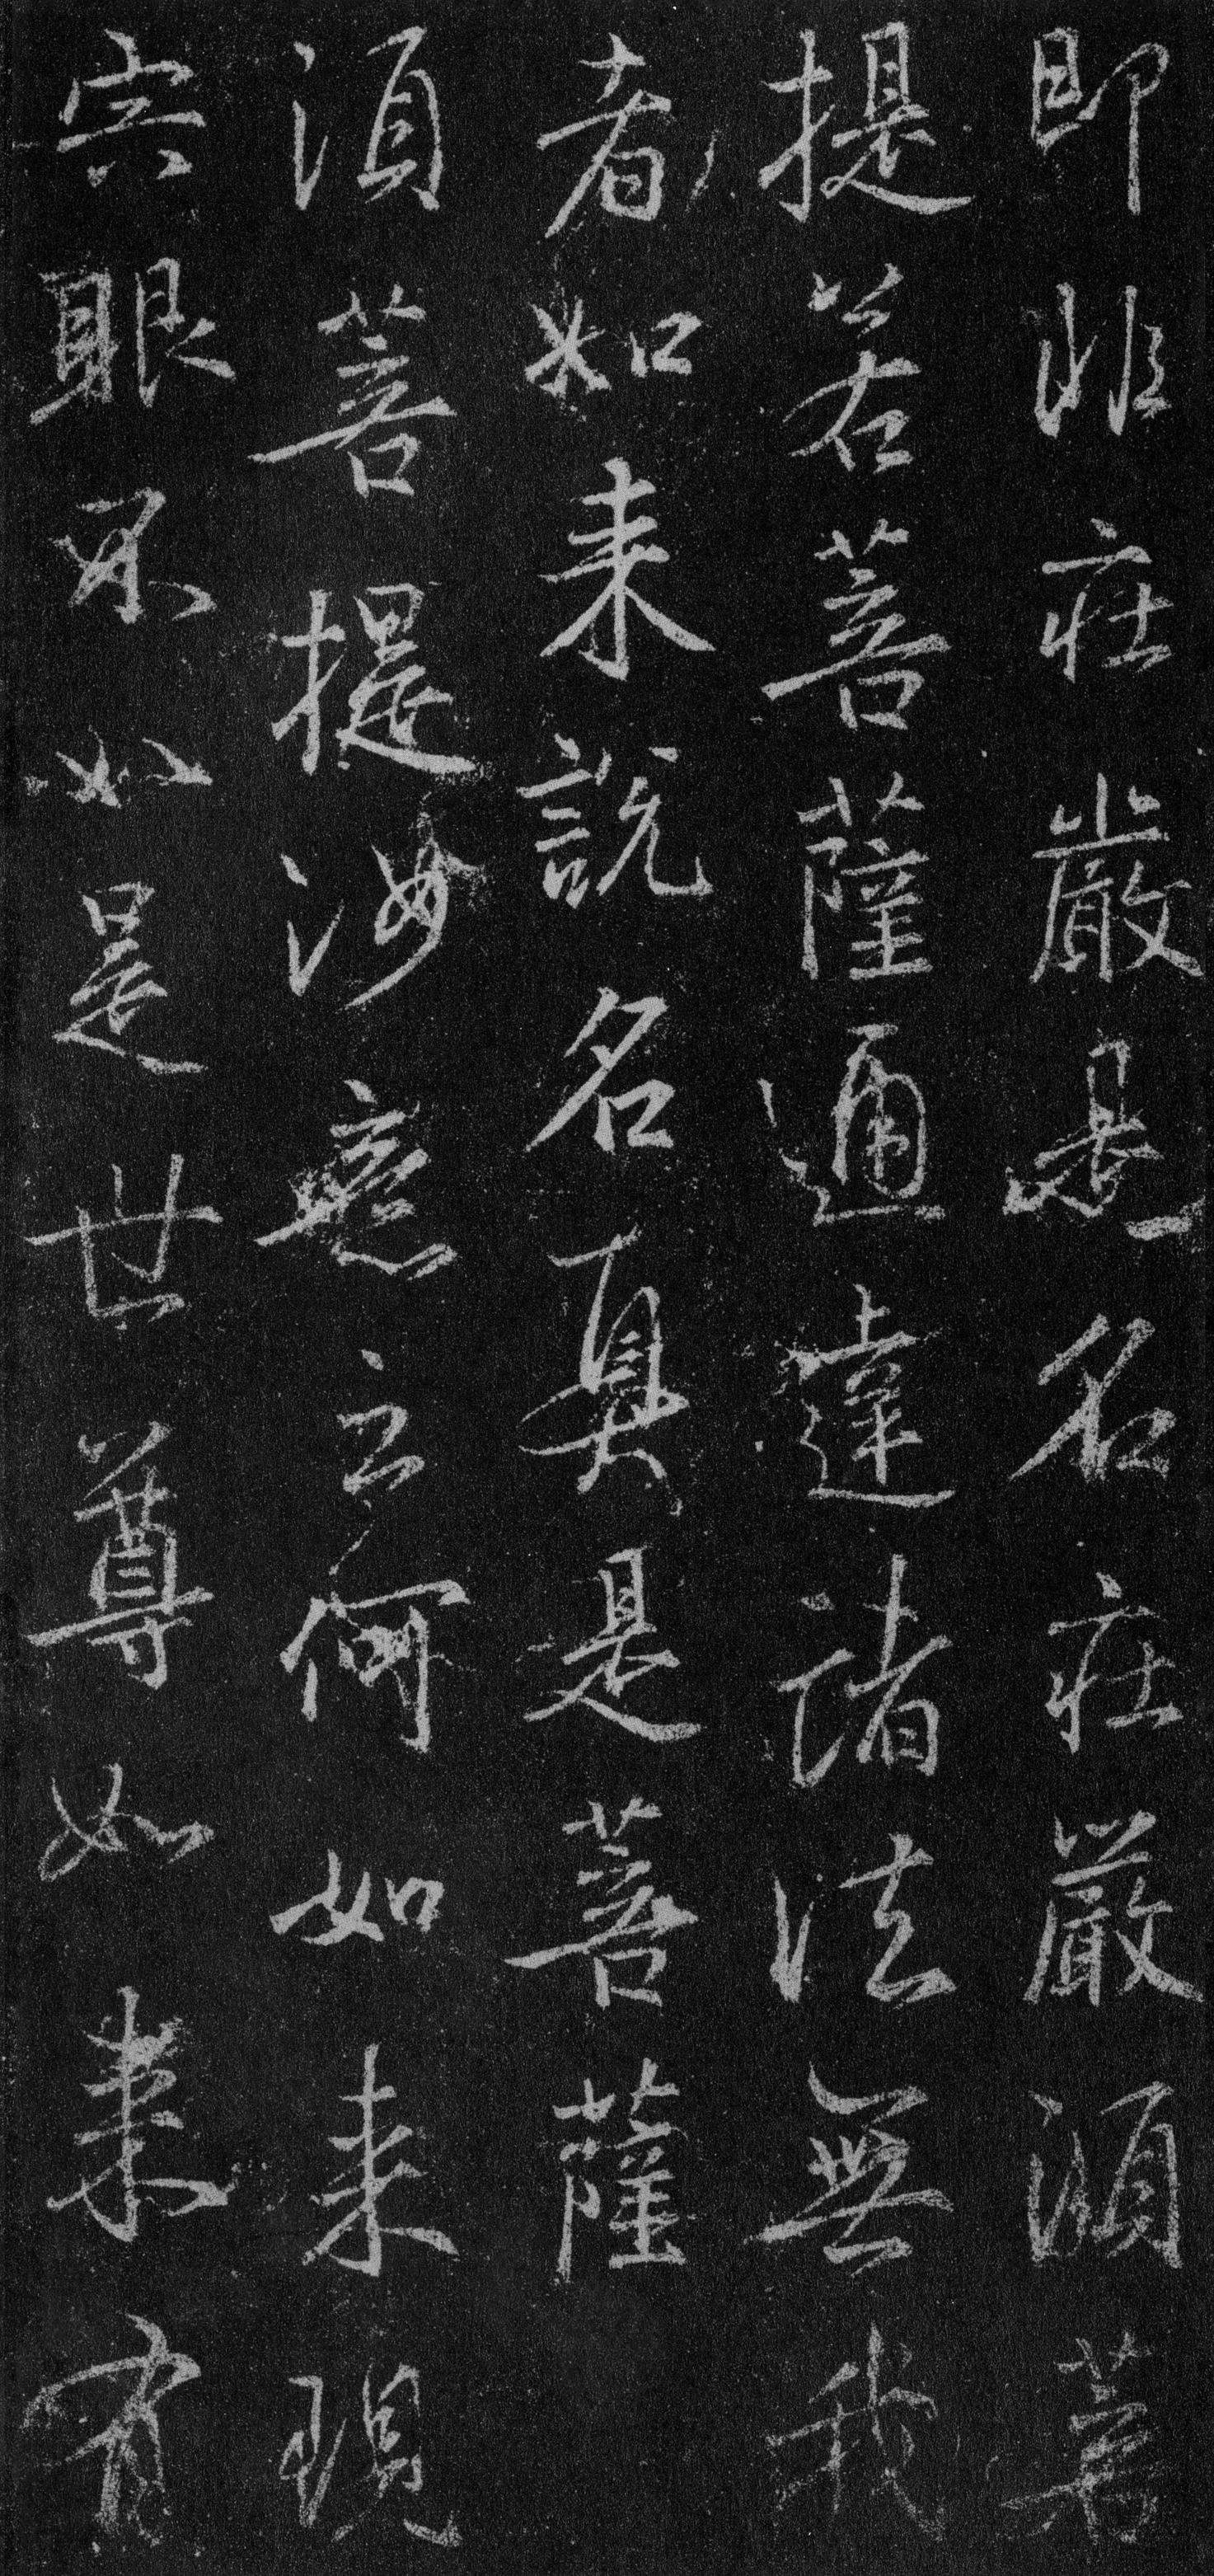 即非莊嚴是名莊嚴須菩
提若菩薩通達諸法無我
者如來說名真是菩薩
須菩提意云何如來現
宍眼不如是世尊如來有